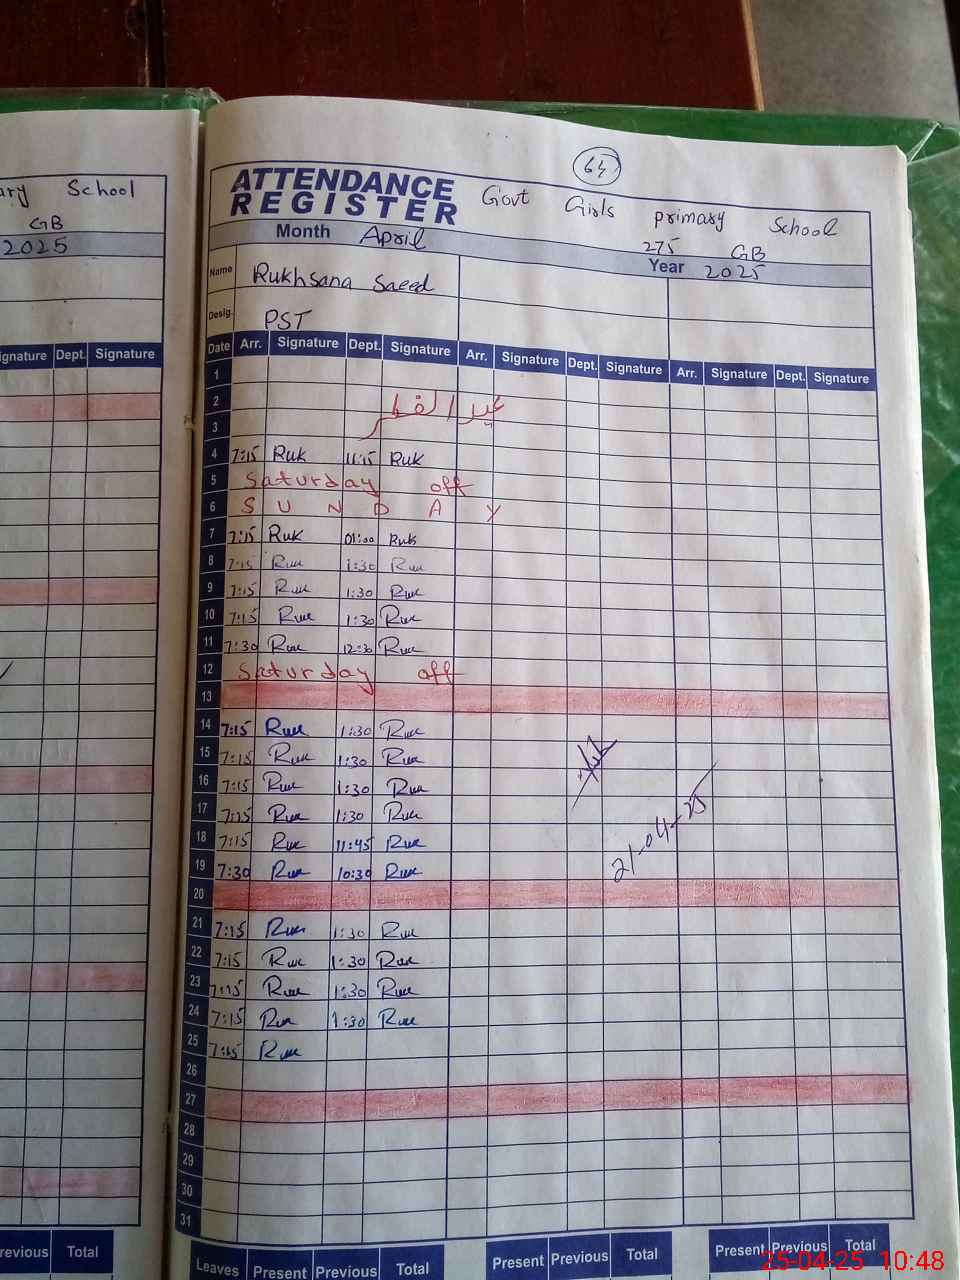 ary School
GB
2025
ignature Dept. Signature
revious Total
64
ATTENDANCE
REGISTER
Govt Girls primary School
Month April 275 GB
Year 2025
Name Rukhsana Saeed
Desig. PST
Date Arr. Signature Dept. Signature Arr. Signature Dept. Signature Arr. Signature Dept. Signature
1
2 عید الفطر
3
4 7:15 Ruk 11:15 Ruk
5 Saturday off
6 S U N D A Y
7 7:15 Ruk 01:00 Ruk
8 7:15 Ruk 1:30 Ruk
9 7:15 Ruk 1:30 Ruk
10 7:15 Ruk 1:30 Ruk
11 7:30 Ruk 12:30 Ruk
12 Saturday off
13
14 7:15 Ruk 1:30 Ruk
15 7:15 Ruk 1:30 Ruk
16 7:15 Ruk 1:30 Ruk
17 7:15 Ruk 1:30 Ruk
18 7:15 Ruk 11:45 Ruk
19 7:30 Ruk 10:30 Ruk
21-04-25
20
21 7:15 Ruk 1:30 Ruk
22 7:15 Ruk 1:30 Ruk
23 7:15 Ruk 1:30 Ruk
24 7:15 Ruk 1:30 Ruk
25 7:15 Ruk
26
27
28
29
30
31
Leaves Present Previous Total Present Previous Total Present Previous Total
25-04-25 10:48